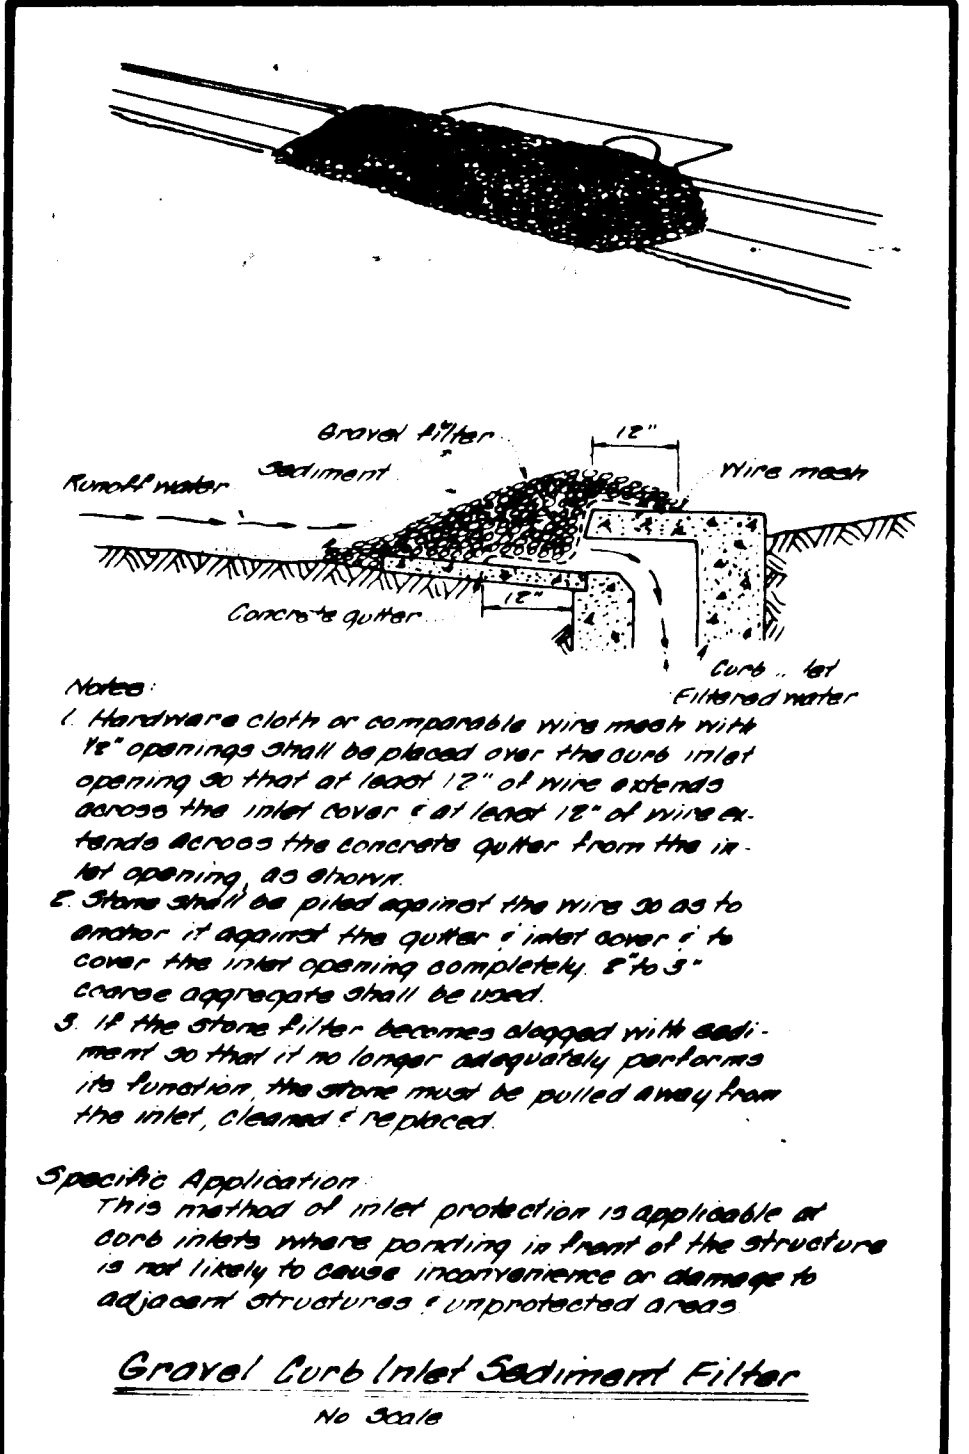 Gravel filter
12"
Sediment
Wire mesh
Runoff water
12"
Concrete gutter
Curb
Filtered water
Notes:
1. Hardware cloth or comparable wire mesh with
1/2" openings shall be placed over the curb inlet
opening so that at least 12" of wire extends
across the inlet cover & at least 12" of wire ex-
tends across the concrete gutter from the in-
let opening, as shown.
2. Stone shall be piled against the wire so as to
anchor it against the gutter & inlet cover & to
cover the inlet opening completely. 2" to 3"
coarse aggregate shall be used.
3. If the stone filter becomes clogged with sedi-
ment so that it no longer adequately performs
its function, the stone must be pulled away from
the inlet, cleaned & replaced.
Specific Application
This method of inlet protection is applicable at
curb inlets where ponding in front of the structure
is not likely to cause inconvenience or damage to
adjacent structures & unprotected areas.
Gravel Curb Inlet Sediment Filter
No Scale